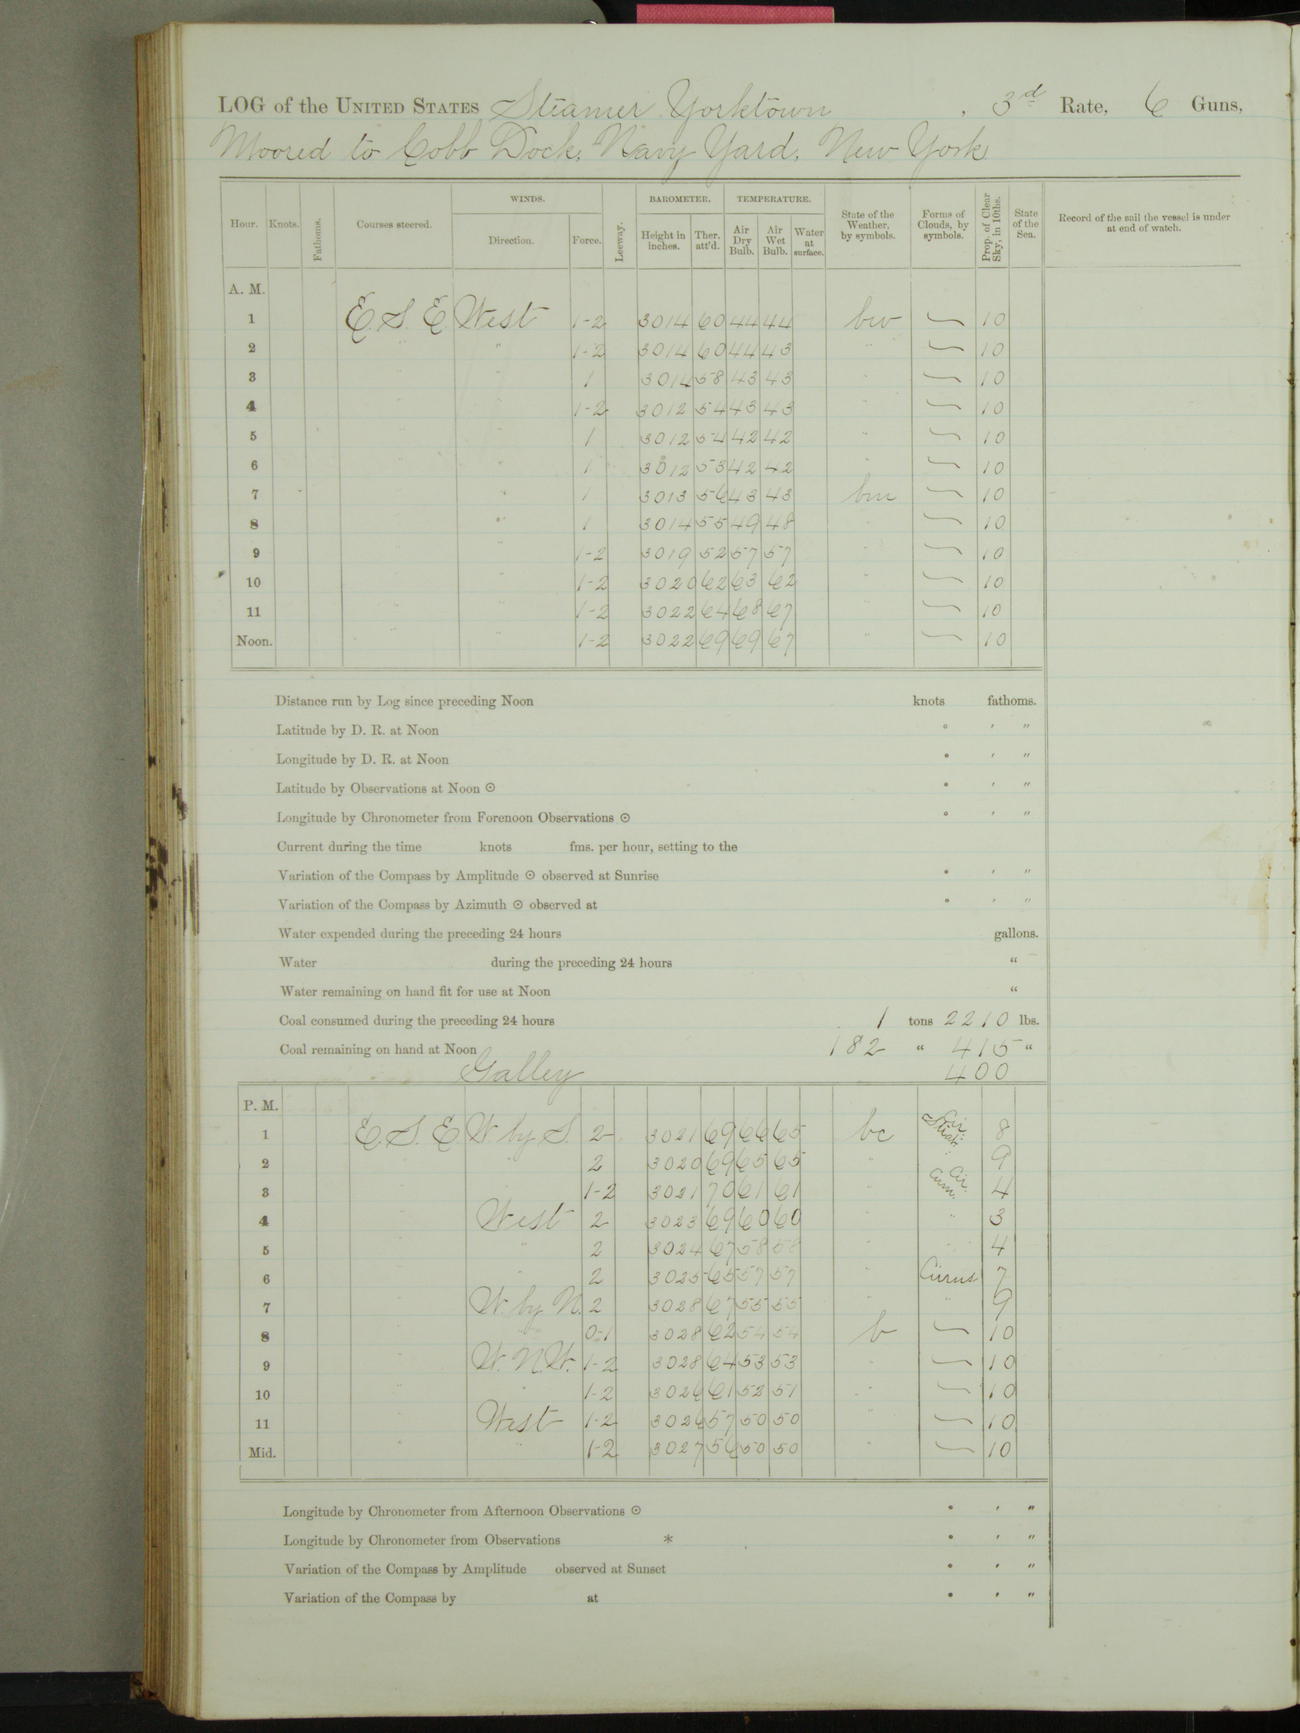 LOG of the UNITED STATES Steamer Yorktown, 3d Rate, 6 Guns,
Moored to Cobb Dock, Navy Yard, New York
WINDS. BAROMETER. TEMPERATURE.
Hour. Knots. Fathoms. Courses steered. Direction. Force. Leeway. Height in inches. Ther. att'd. Air Dry Bulb. Air Wet Bulb. Water at surface. State of the Weather, by symbols. Forms of Clouds, by symbols. Prop. of Clear Sky, in 10ths. State of the Sea. Record of the sail the vessel is under at end of watch.
A. M.
1 E. S. E West 1-2 3014 60 44 44 bw — 10
2 " " 1-2 3014 60 44 43 " — 10
3 " " 1 3014 58 43 43 " — 10
4 " " 1-2 3012 54 43 43 " — 10
5 " " 1 3012 54 42 42 " — 10
6 " " 1 3012 53 42 42 " — 10
7 " " 1 3013 56 43 43 bm — 10
8 " " 1 3014 55 49 48 " — 10
9 " " 1-2 3019 52 57 57 " — 10
10 " " 1-2 3020 62 63 62 " — 10
11 " " 1-2 3022 64 68 67 " — 10
Noon. " " 1-2 3022 69 69 67 " — 10
Distance run by Log since preceding Noon knots fathoms.
Latitude by D. R. at Noon ° ′ ″
Longitude by D. R. at Noon ° ′ ″
Latitude by Observations at Noon ⊙ ° ′ ″
Longitude by Chronometer from Forenoon Observations ⊙ ° ′ ″
Current during the time knots fms. per hour, setting to the
Variation of the Compass by Amplitude ⊙ observed at Sunrise ° ′ ″
Variation of the Compass by Azimuth ⊙ observed at ° ′ ″
Water expended during the preceding 24 hours gallons.
Water during the preceding 24 hours "
Water remaining on hand fit for use at Noon "
Coal consumed during the preceding 24 hours 1 tons 2210 lbs.
Coal remaining on hand at Noon 182 " 415 "
Galley 400
P. M.
1 E. S. E W. by S. 2 3021 69 66 65 bc Cir. Strat. 8
2 " " 2 3020 69 65 65 " " 9
3 " " 1-2 3021 70 61 61 " Cir. Cum. 4
4 " West 2 3023 69 60 60 " " 3
5 " " 2 3024 67 58 58 " " 4
6 " " 2 3025 65 57 57 " Cirrus 7
7 " W. by N. 2 3028 67 55 55 " " 9
8 " " 0-1 3028 62 54 54 b — 10
9 " W. N. W. 1-2 3028 64 53 53 " — 10
10 " " 1-2 3026 61 52 51 " — 10
11 " West 1-2 3026 57 50 50 " — 10
Mid. " " 1-2 3027 56 50 50 " — 10
Longitude by Chronometer from Afternoon Observations ⊙ ° ′ ″
Longitude by Chronometer from Observations * ° ′ ″
Variation of the Compass by Amplitude observed at Sunset ° ′ ″
Variation of the Compass by at ° ′ ″